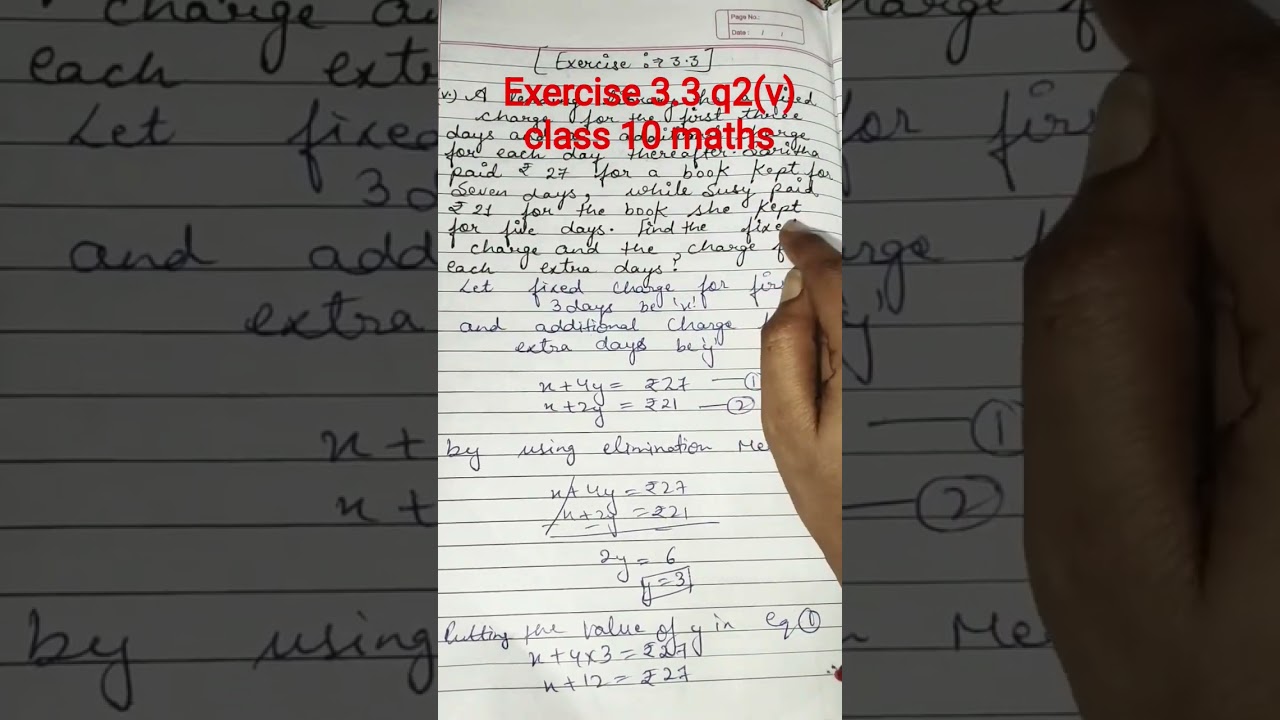 Page No.:
Date: / /
[Exercise :→ 3.3]
Exercise 3.3 q2(v)
class 10 maths
(v.) A
charge for the first three
days additional charge
for each day thereafter. Saritha
paid ₹ 27 for a book kept for
Seven days, while Susy paid
₹ 21 for the book she kept
for five days. Find the fixe
charge and the charge f
each extra days?
Let fixed charge for firs
3 days be 'x'
and additional charge
extra days be 'y'
x + 4y = ₹27 —①
x + 2y = ₹21 —②
by using elimination Me
x + 4y = ₹27
x + 2y = ₹21
2y = 6
y = 3
Putting the value of y in eq ①
x + 4×3 = ₹27
x + 12 = ₹27
charge
each ext
Let fixed
3 d
and add
extra
x +
x +
by using
charge f
for firs
arge
y'
①
②
Me